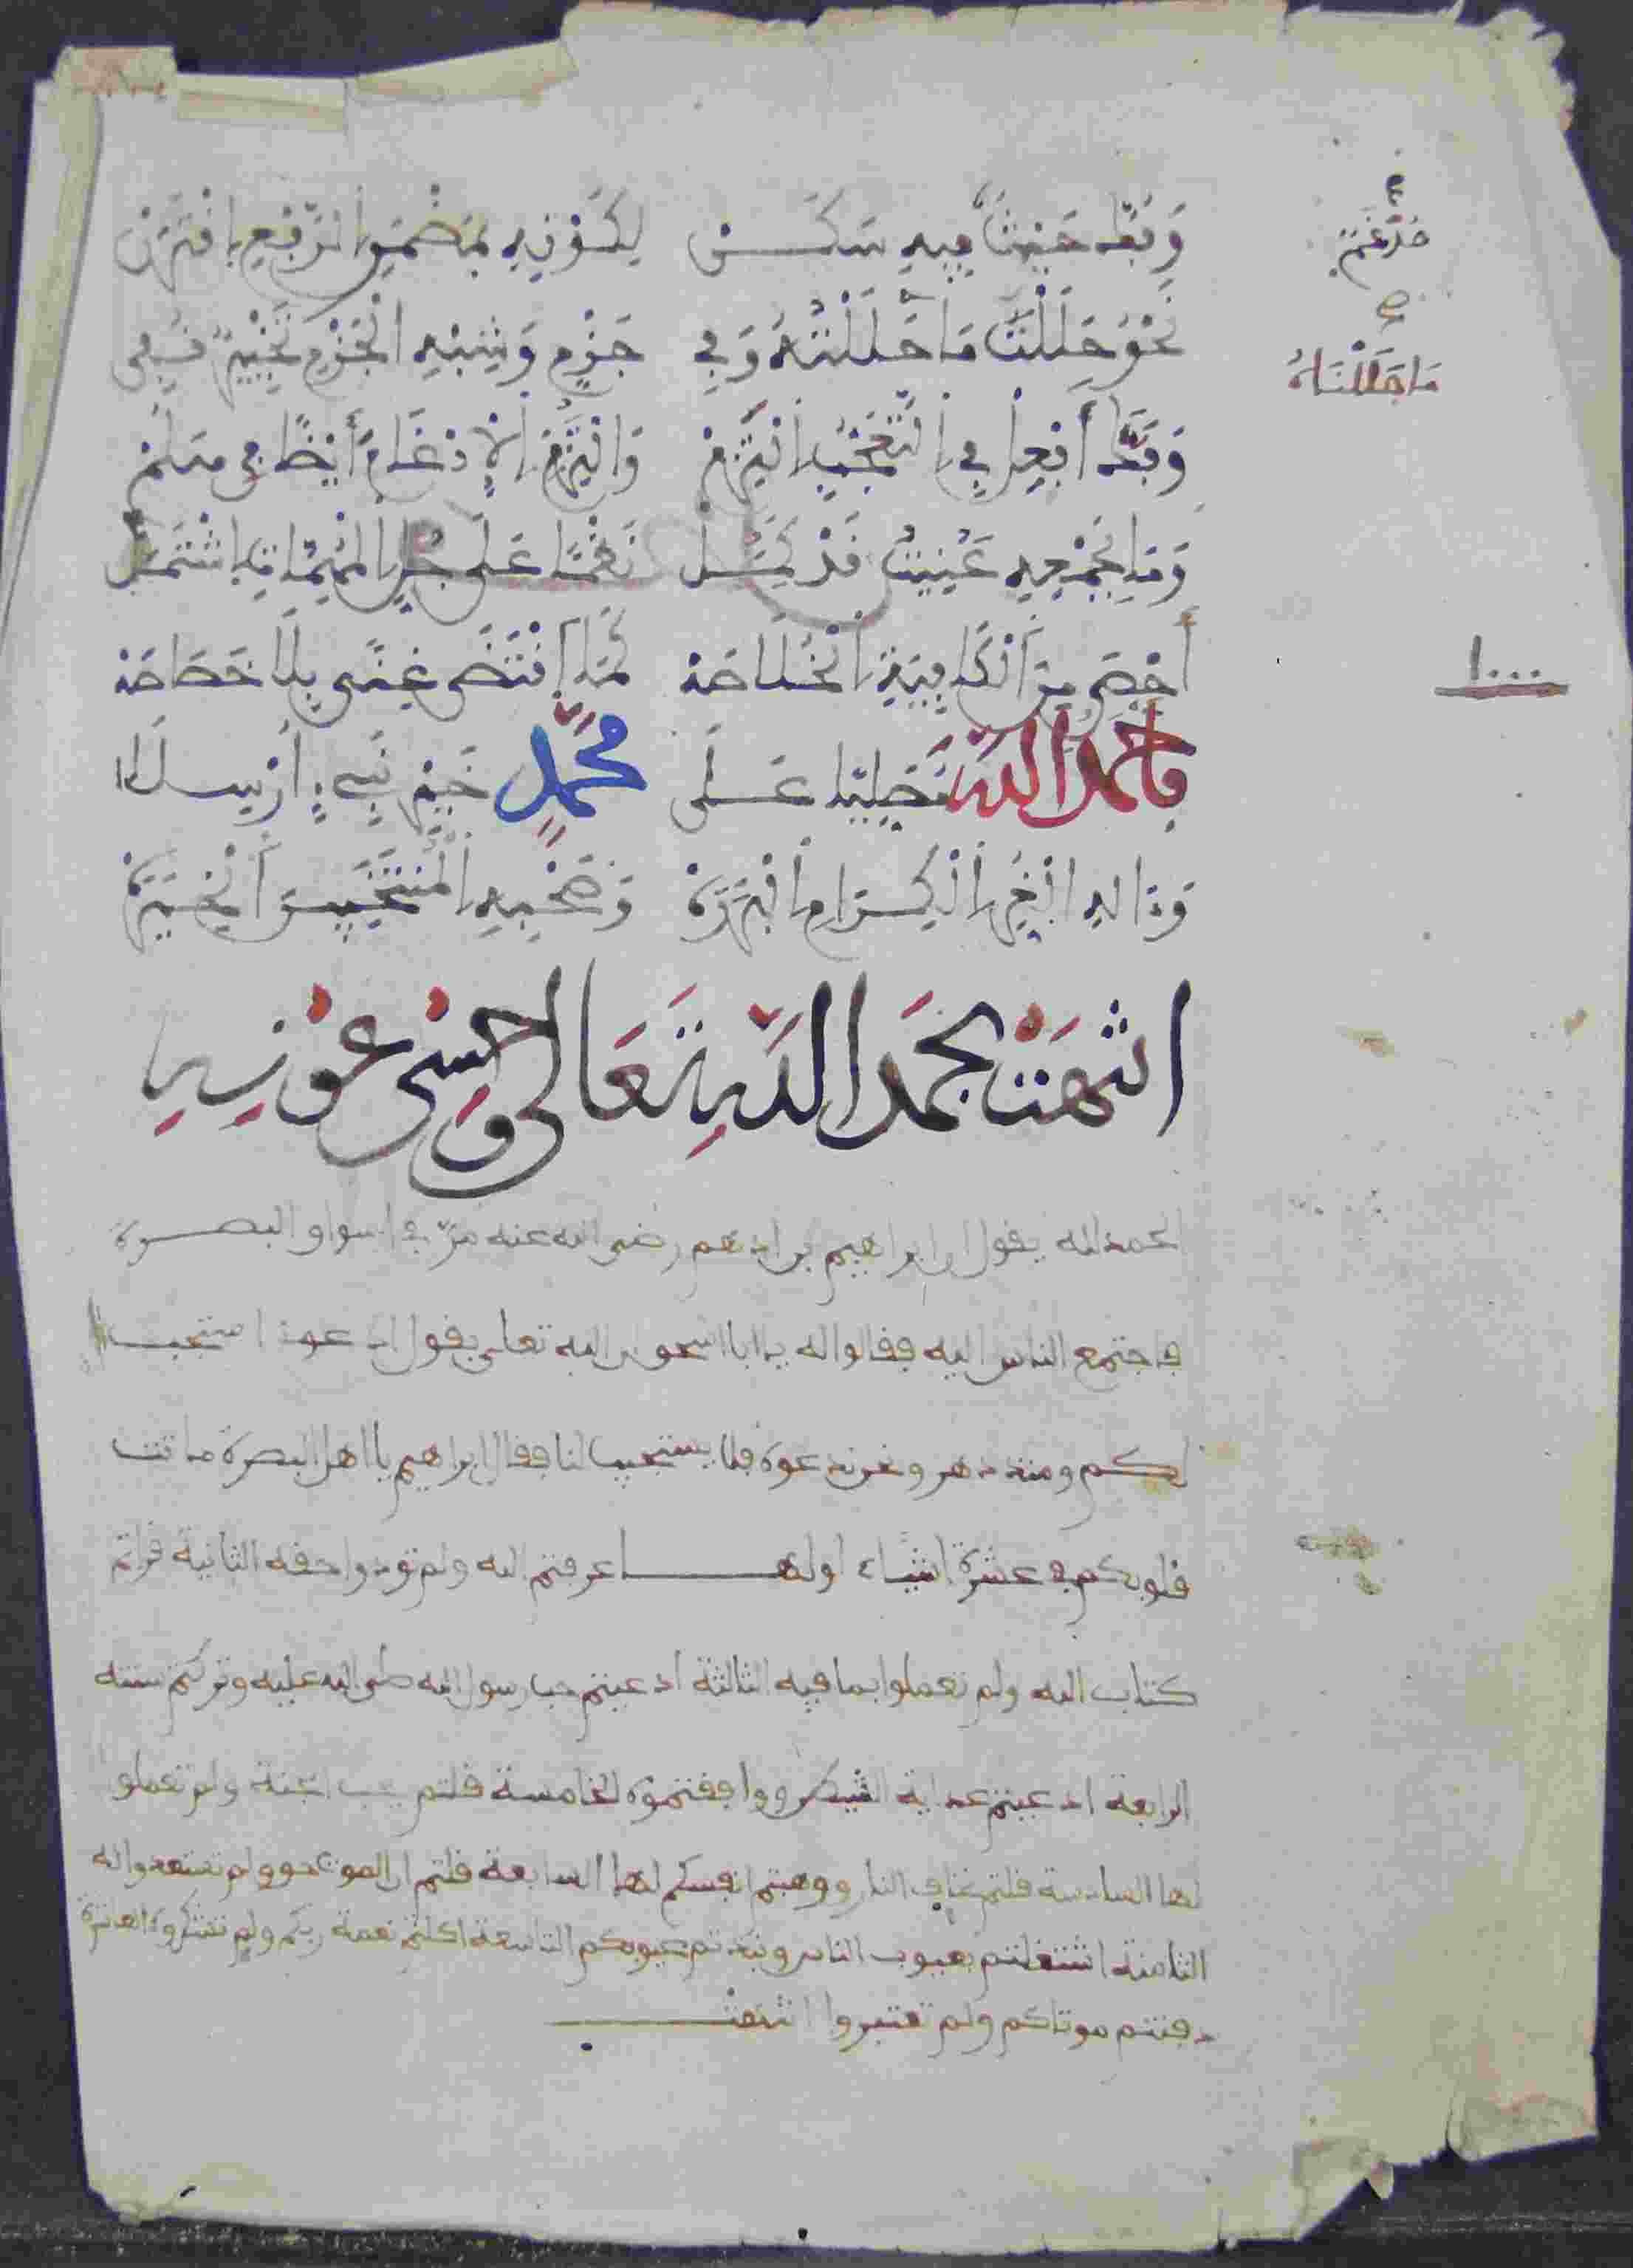 وَفُكَّ حَيْثُ مُدْغَمٌ فِيهِ سَكَنْ لِكَوْنِهِ بِمُضْمَرِ الرَّفْعِ اقْتَرَنْ
مُدْغَمٌ
نَحْوُ حَلَلْتُ مَا حَلَلْتُهُ وَفِي جَزْمٍ وَشِبْهِ الْجَزْمِ تَخْيِيرٌ قُفِي
مَا حَلَلْنَاهُ
وَفَكُّ أَفْعِلْ فِي التَّعَجُّبِ الْتُزِمْ وَالْتُزِمَ الْإِدْغَامُ أَيْضًا فِي هَلُمْ
وَمَا بِجَمْعِهِ عُنِيتُ قَدْ كَمَلْ نَظْمًا عَلَى جُلِّ الْمُهِمَّاتِ اشْتَمَلْ
أَحْصَى مِنَ الْكَافِيَةِ الْخُلَاصَهْ كَمَا اقْتَضَى غِنًى بِلَا خَصَاصَهْ
١٠٠٠
فَأَحْمَدُ اللهَ مُصَلِّيًا عَلَى مُحَمَّدٍ خَيْرِ نَبِيٍّ أُرْسِلَا
وَءَالِهِ الْغُرِّ الْكِرَامِ الْبَرَرَهْ وَصَحْبِهِ الْمُنْتَخَبِينَ الْخِيَرَهْ
انتهت بحمد الله تعالى وحسن عونه
الحمد لله يقول ان ابراهيم بن ادهم رضي الله عنه مرّ في اسواق البصرة
فاجتمع الناس اليه فقالوا له يا ابا اسحق ان الله تعلى يقول ادعوني استجب
لكم ومنذ دهر ونحن ندعوه فلا يستجيب لنا فقال ابراهيم يا اهل البصرة ماتت
قلوبكم في عشرة اشياء اولها عرفتم الله ولم تؤدوا حقه الثانية قراتم
كتاب الله ولم تعملوا بما فيه الثالثة ادعيتم حب رسول الله صلى الله عليه وتركتم سنته
الرابعة ادعيتم عداوة الشيطن ووافقتموه الخامسة قلتم نحب الجنة ولم تعملوا
لها السادسة قلتم نخاف النار ووهبتم انفسكم لها السابعة قلتم ان الموت حق ولم تستعدوا له
الثامنة اشتغلتم بعيوب الناس ونبذتم عيوبكم التاسعة اكلتم نعمة ربكم ولم تشكروه العاشرة
دفنتم موتاكم ولم تعتبروا انتهت